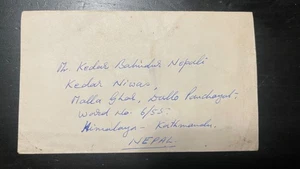 Mr. Kedar Bahindra Nepali
Kedar Niwas,
Malla Ghar, Dallo Panchayat-
Ward no. 6/55-
Himalaya - Kathmandu.
NEPAL